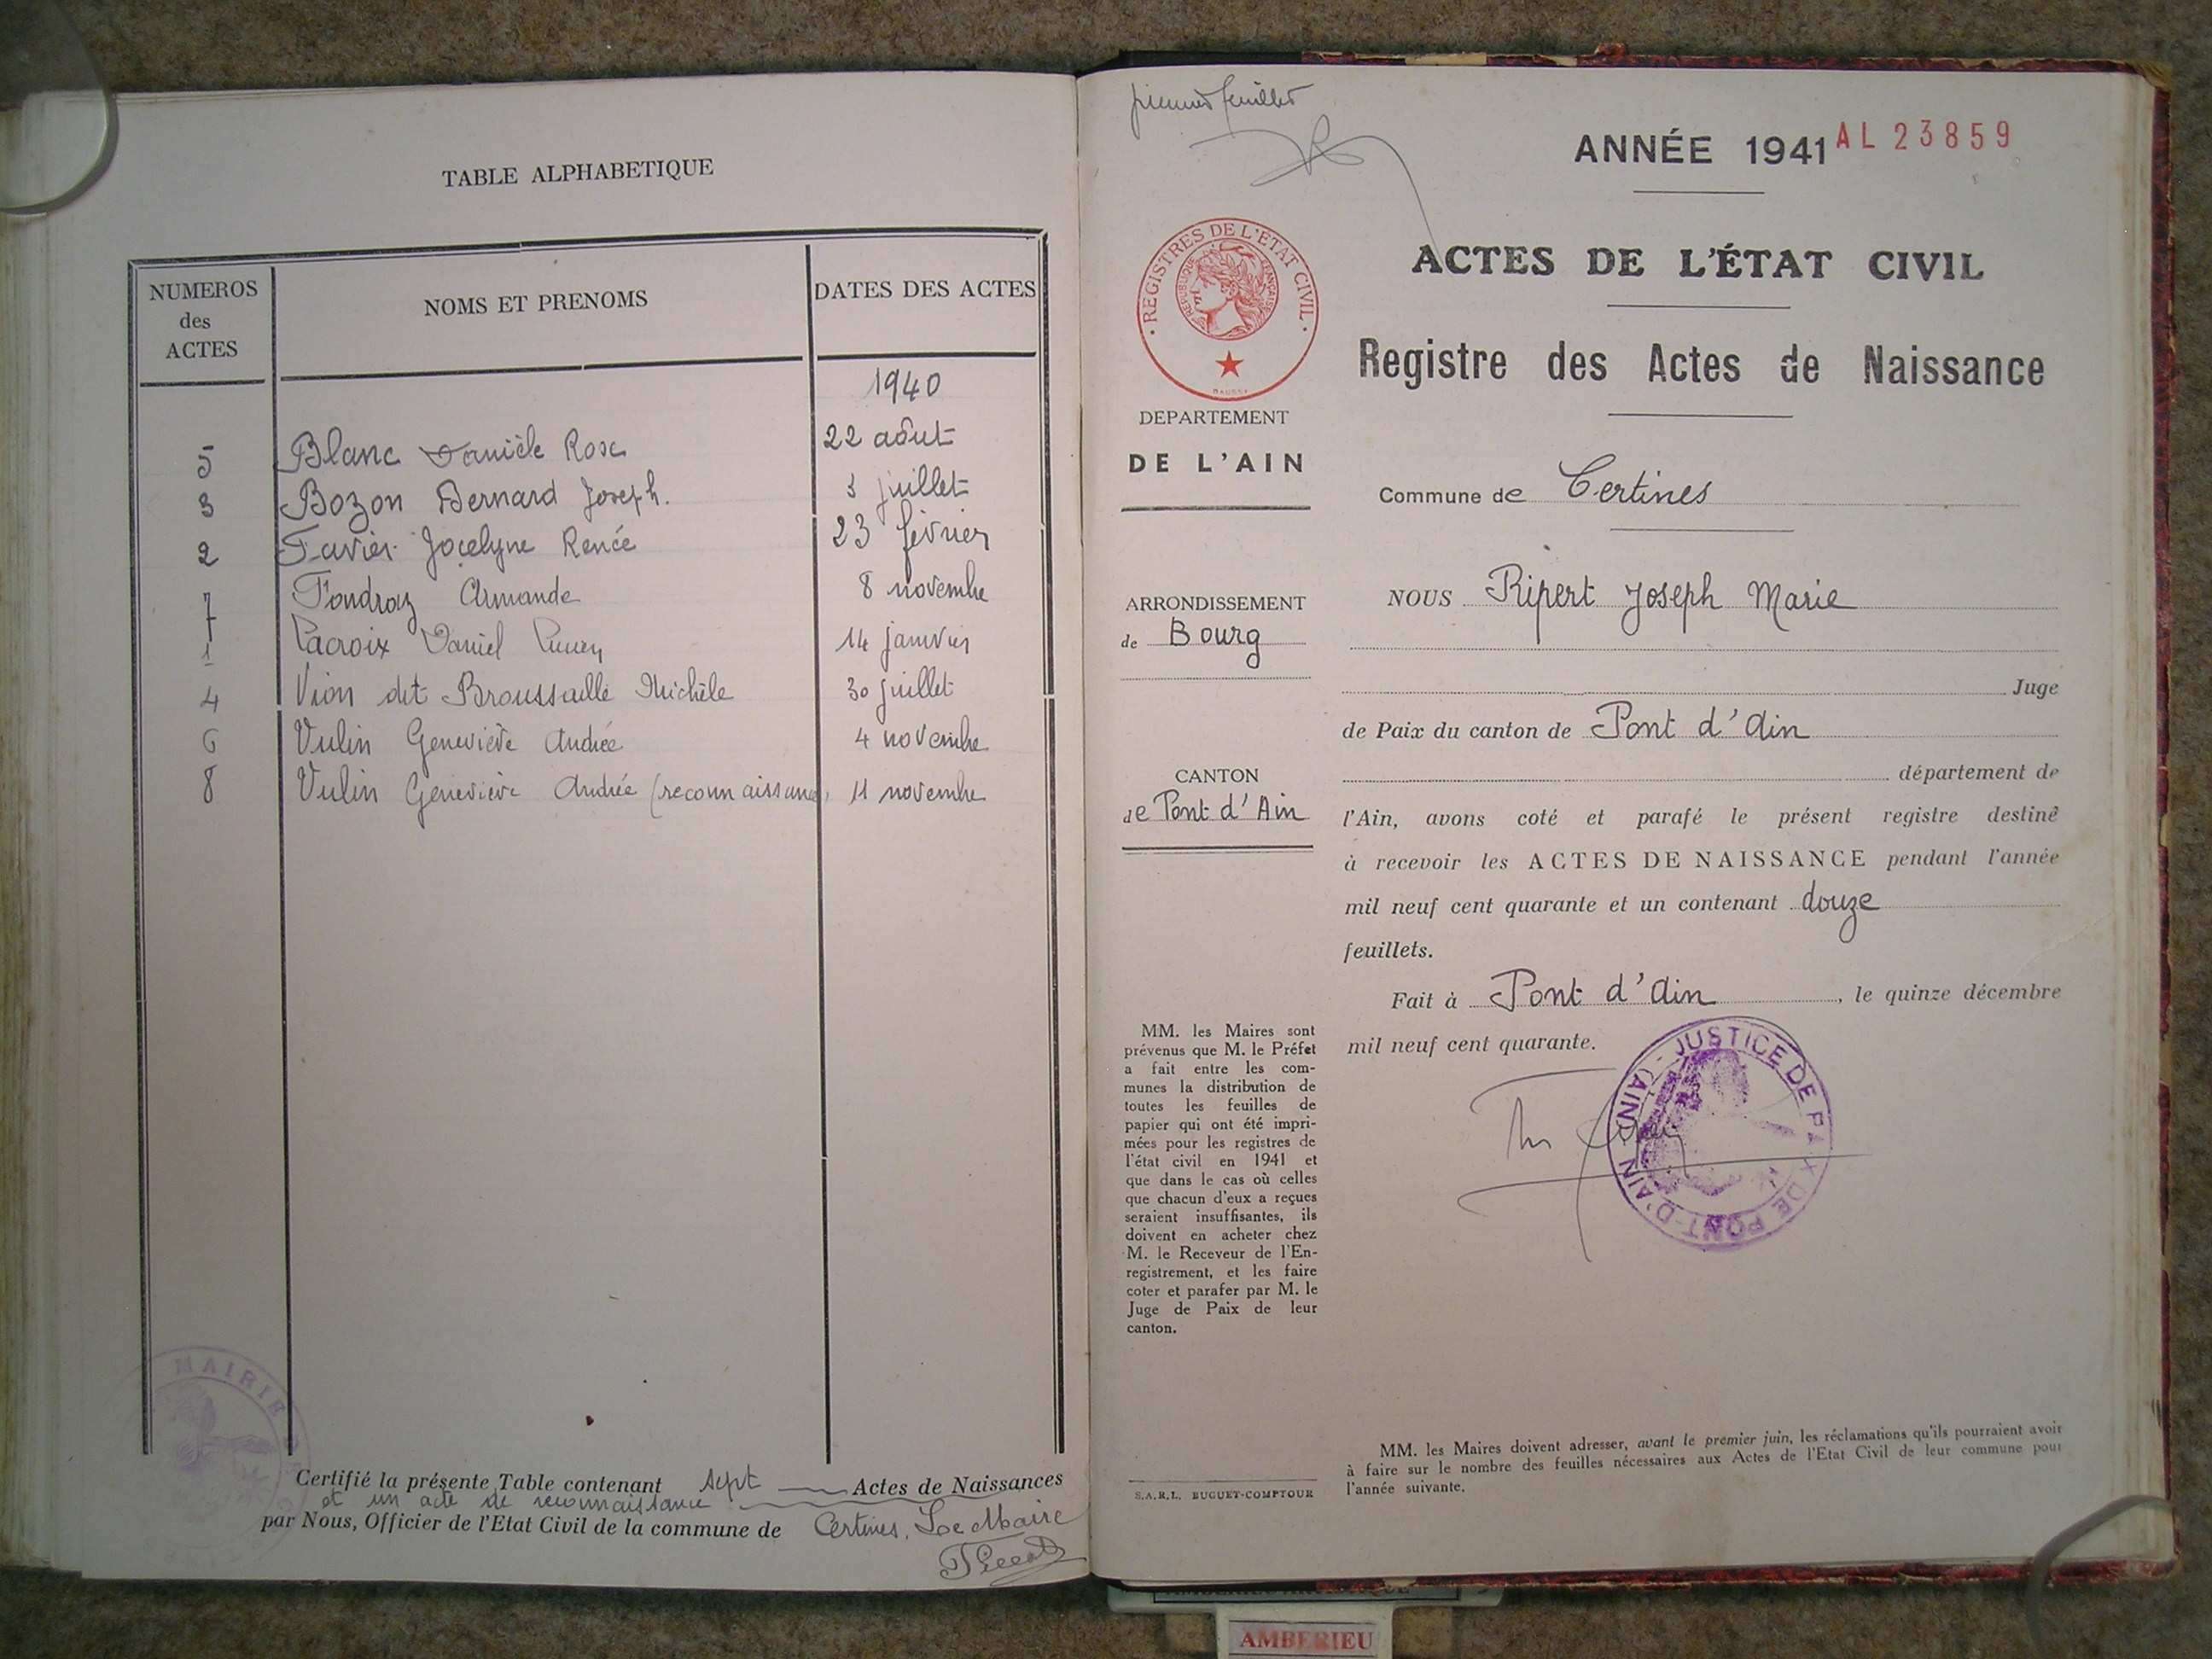 TABLE ALPHABETIQUE
NUMEROS des ACTES
NOMS ET PRENOMS
DATES DES ACTES
1940
5 Blanc Danièle Rose 22 août
3 Bozon Bernard Joseph. 3 juillet
2 Favier Jocelyne Renée 23 février
7 Fondraz Armande 8 novembre
1 Lacroix Daniel 14 janvier
4 Vion dit Broussaille Michèle 30 juillet
6 Vulin Geneviève Andrée 4 novembre
8 Vulin Geneviève Andrée (reconnaissance) 11 novembre
MAIRIE
Certifié la présente Table contenant sept Actes de Naissances
et un acte de reconnaissance
par Nous, Officier de l'Etat Civil de la commune de Certines, Le Maire
premier feuillet
ANNÉE 1941 AL 23859
REGISTRES DE L'ETAT CIVIL
REPUBLIQUE FRANÇAISE
ACTES DE L'ÉTAT CIVIL
Registre des Actes de Naissance
DEPARTEMENT
DE L'AIN
Commune de Certines
ARRONDISSEMENT
de Bourg
CANTON
de Pont d'Ain
NOUS Ripert Joseph Marie
Juge
de Paix du canton de Pont d'Ain
département de
l'Ain, avons coté et parafé le présent registre destiné
à recevoir les ACTES DE NAISSANCE pendant l'année
mil neuf cent quarante et un contenant douze
feuillets.
Fait à Pont d'Ain, le quinze décembre
mil neuf cent quarante.
JUSTICE DE PAIX DE PONT-D'AIN (AIN)
MM. les Maires sont
prévenus que M. le Préfet
a fait entre les com-
munes la distribution de
toutes les feuilles de
papier qui ont été impri-
mées pour les registres de
l'état civil en 1941 et
que dans le cas où celles
que chacun d'eux a reçues
seraient insuffisantes, ils
doivent en acheter chez
M. le Receveur de l'En-
registrement, et les faire
coter et parafer par M. le
Juge de Paix de leur
canton.
S.A.R.L. BUGUET-COMPTOUR
MM. les Maires doivent adresser, avant le premier juin, les réclamations qu'ils pourraient avoir
à faire sur le nombre des feuilles nécessaires aux Actes de l'Etat Civil de leur commune pour
l'année suivante.
AMBERIEU